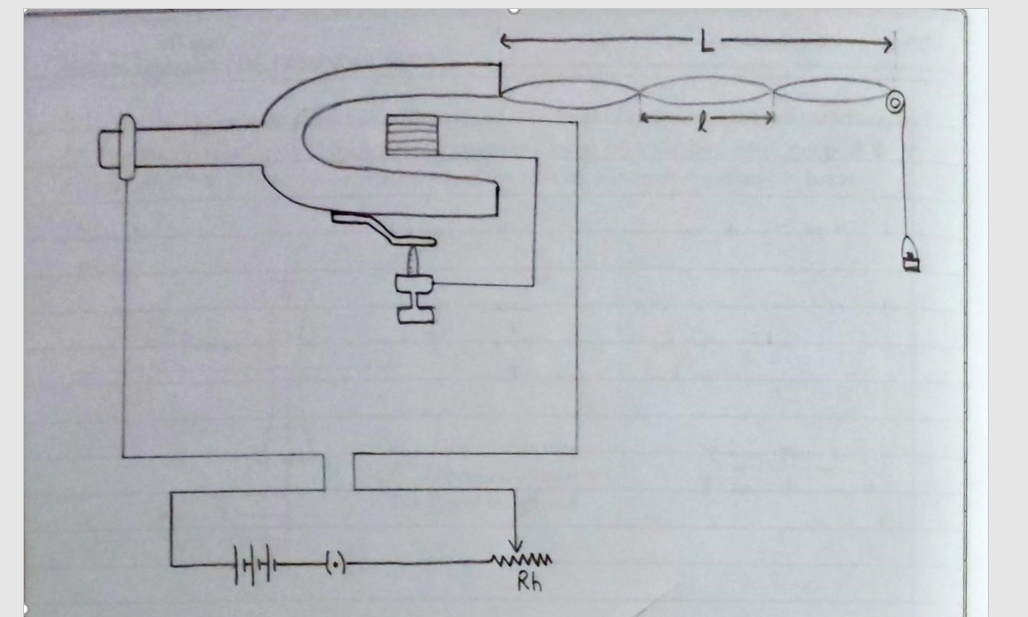 L
l
Rh